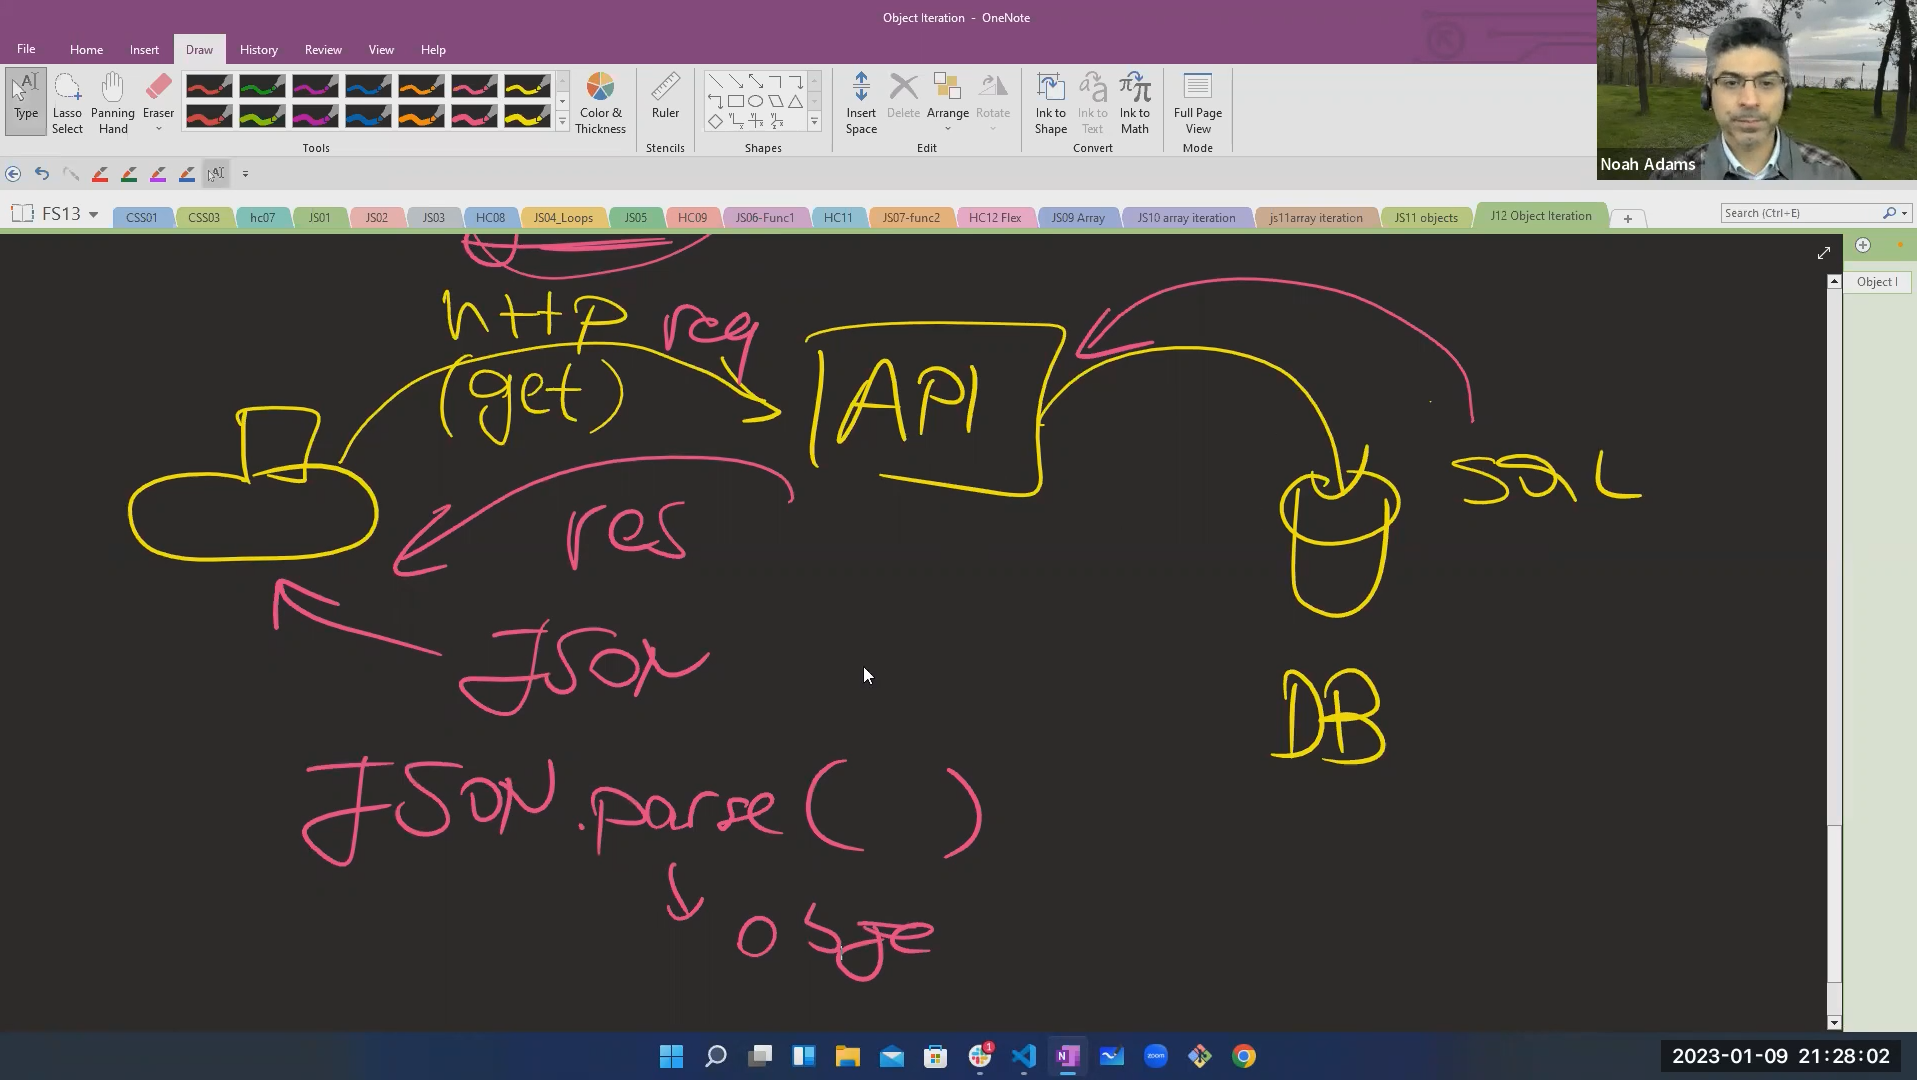 Object Iteration - OneNote
File Home Insert Draw History Review View Help
Type
Lasso Select
Panning Hand
Eraser
Color & Thickness
Ruler
Insert Space
Delete
Arrange
Rotate
Ink to Shape
Ink to Text
Ink to Math
Full Page View
Tools Stencils Shapes Edit Convert Mode
Noah Adams
FS13 CSS01 CSS03 hc07 JS01 JS02 JS03 HC08 JS04_Loops JS05 HC09 JS06-Func1 HC11 JS07-func2 HC12 Flex JS09 Array JS10 array iteration js11array iteration JS11 objects J12 Object Iteration
Search (Ctrl+E)
Object I
http req
(get)
API
SQL
res
JSON
DB
JSON.parse( )
obje
zoom
1
2023-01-09 21:28:02